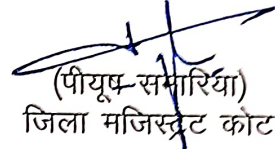 (पीयूष समारिया)
जिला मजिस्ट्रेट कोट